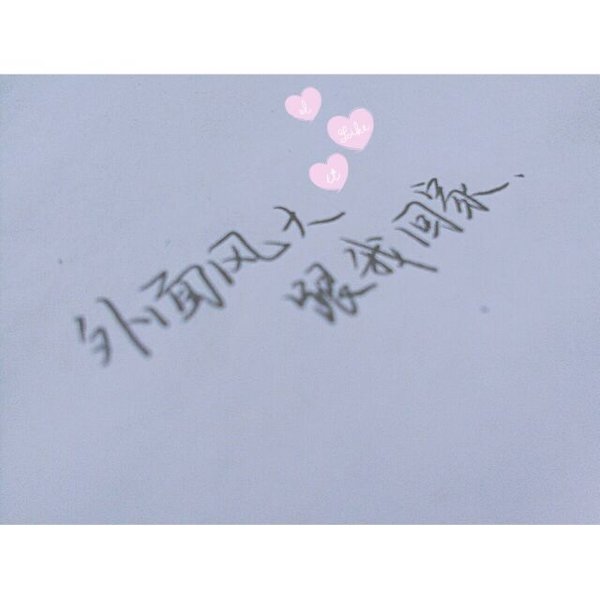 I
Like
it
外面风大
跟我回家.